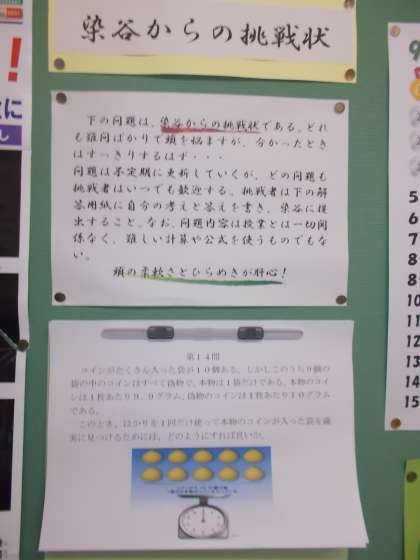 染谷からの挑戦状
下の問題は、染谷からの挑戦状である。どれ
も難問ばかりで頭を悩ますが、分かったとき
はすっきりするはず・・・
問題は不定期に更新していくが、どの問題も
挑戦者はいつでも歓迎する。挑戦者は下の解
答用紙に自分の考えと答えを書き、染谷に提
出すること。なお、問題内容は授業とは一切関
係なく、難しい計算や公式を使うものでもな
い。
頭の柔軟さとひらめきが肝心!
第14問
コインがたくさん入った袋が10個ある。しかしこのうち9個の
袋の中のコインはすべて偽物で、本物は1袋だけである。本物のコイ
ンは1枚あたり9.9グラム、偽物のコインは1枚あたり10グラム
である。
このとき、はかりを1回だけ使って本物のコインが入った袋を確
実に見つけるためには、どのようにすれば良いか。
!
に
し
9
5
6
7
8
9
10
11
12
13
14
15